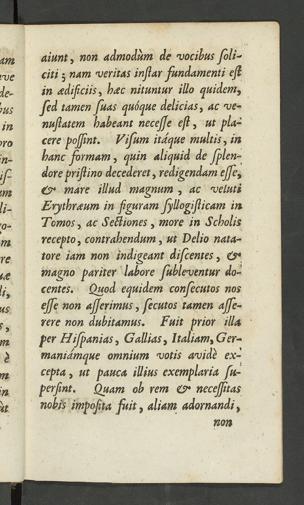 aiunt, non admodùm de vocibus soli-
citi; nam veritas instar fundamenti est
in ædificiis, hæc nituntur illo quidem,
sed tamen suas quóque delicias, ac ve-
nustatem habeant necesse est, ut pla-
cere possint. Visum itáque multis, in
hanc formam, quin aliquid de splen-
dore pristino decederet, redigendam esse,
& mare illud magnum, ac veluti
Erythræum in figuram syllogisticam in
Tomos, ac Sectiones, more in Scholis
recepto, contrahendum, ut Delio nata-
tore iam non indigeant discentes, &
magno pariter labore subleventur do-
centes. Quod equidem consecutos nos
esse non asserimus, secutos tamen asse-
rere non dubitamus. Fuit prior illa
per Hispanias, Gallias, Italiam, Ger-
maniámque omnium votis avidè ex-
cepta, ut pauca illius exemplaria su-
persint. Quam ob rem & necessitas
nobis imposita fuit, aliam adornandi,
non